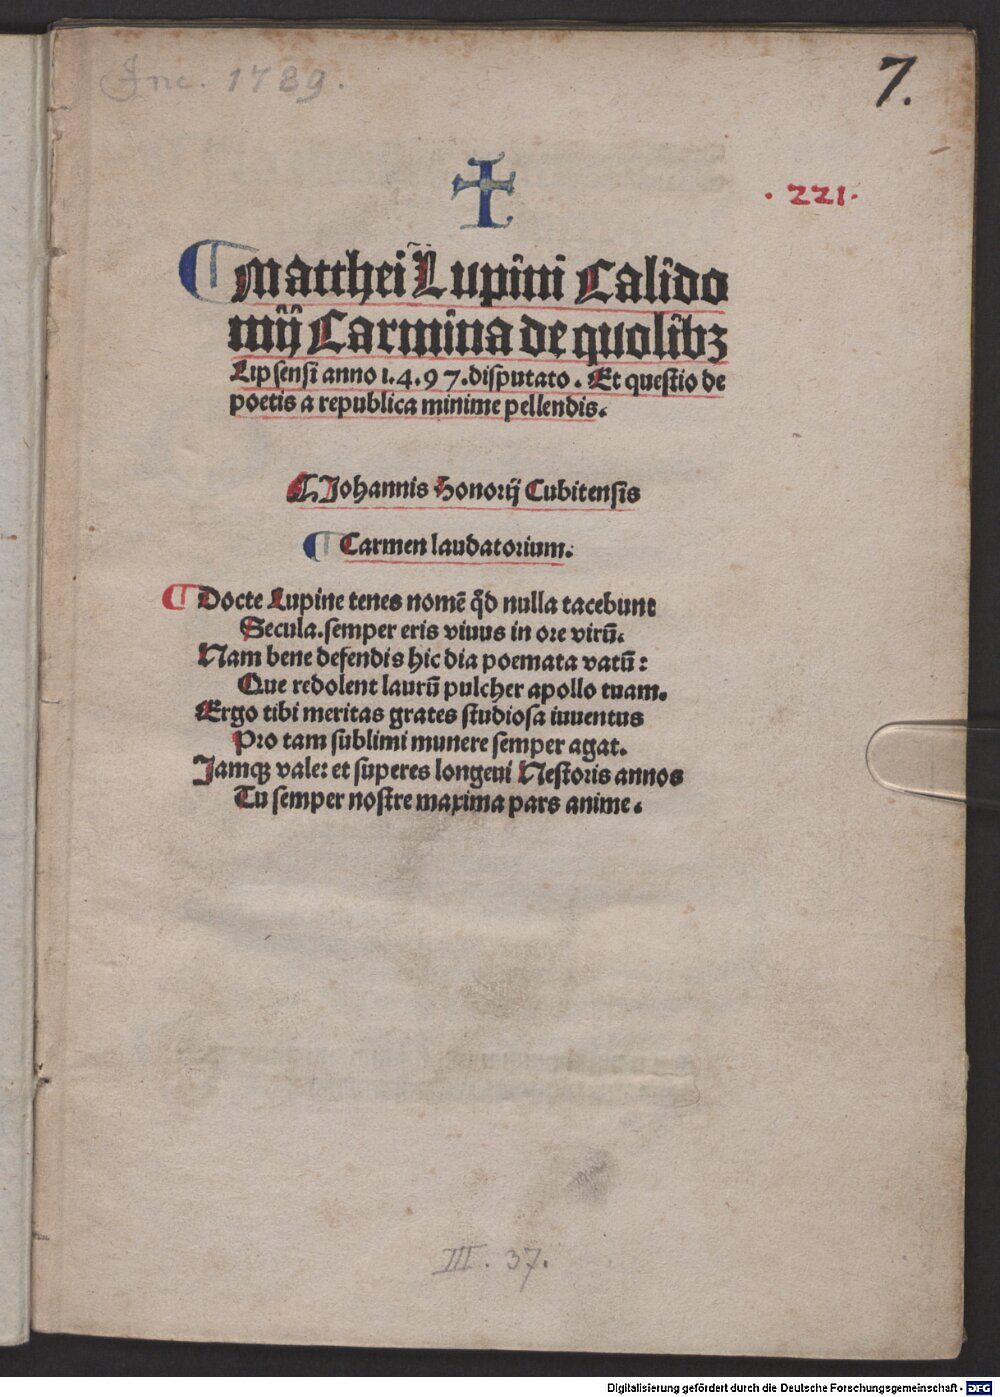 Inc. 1789.
7.
· 221 ·
Matthei Lupini Calido
mij Carmina de quolibꝫ
Lipsensi anno 1.4.97. disputato. Et questio de
poetis a republica minime pellendis.
Johannis Honorij Cubitensis
Carmen laudatorium.
Docte Lupine tenes nomē q̄d nulla tacebunt
Secula. semper eris viuus in ore virū.
Nam bene defendis hic dia poemata vatū:
Que redolent laurū pulcher apollo tuam.
Ergo tibi meritas grates studiosa iuuentus
Pro tam sublimi munere semper agat.
Jamqꝫ vale: et superes longeui Nestoris annos
Tu semper nostre maxima pars anime.
III. 37.
Digitalisierung gefördert durch die Deutsche Forschungsgemeinschaft - DFG